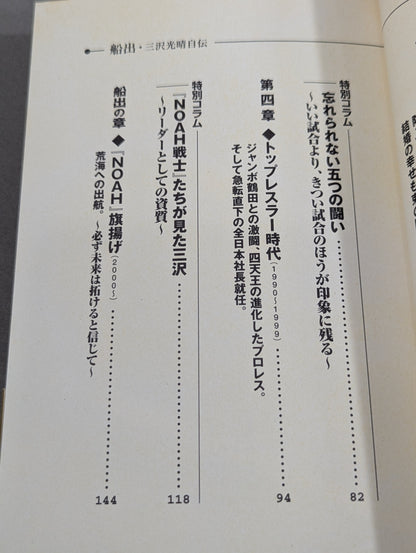 船出・三沢光晴自伝
特別コラム
忘れられない五つの闘い……82
〜いい試合より、きつい試合のほうが印象に残る〜
第四章◆トップレスラー時代(1990〜1999)……94
ジャンボ鶴田との激闘、四天王の進化したプロレス。
そして急転直下の全日本社長就任。
特別コラム
『NOAH戦士』たちが見た三沢……118
〜リーダーとしての資質〜
船出の章◆『NOAH』旗揚げ(2000〜)……144
荒海への出航。〜必ず未来は拓けると信じて〜